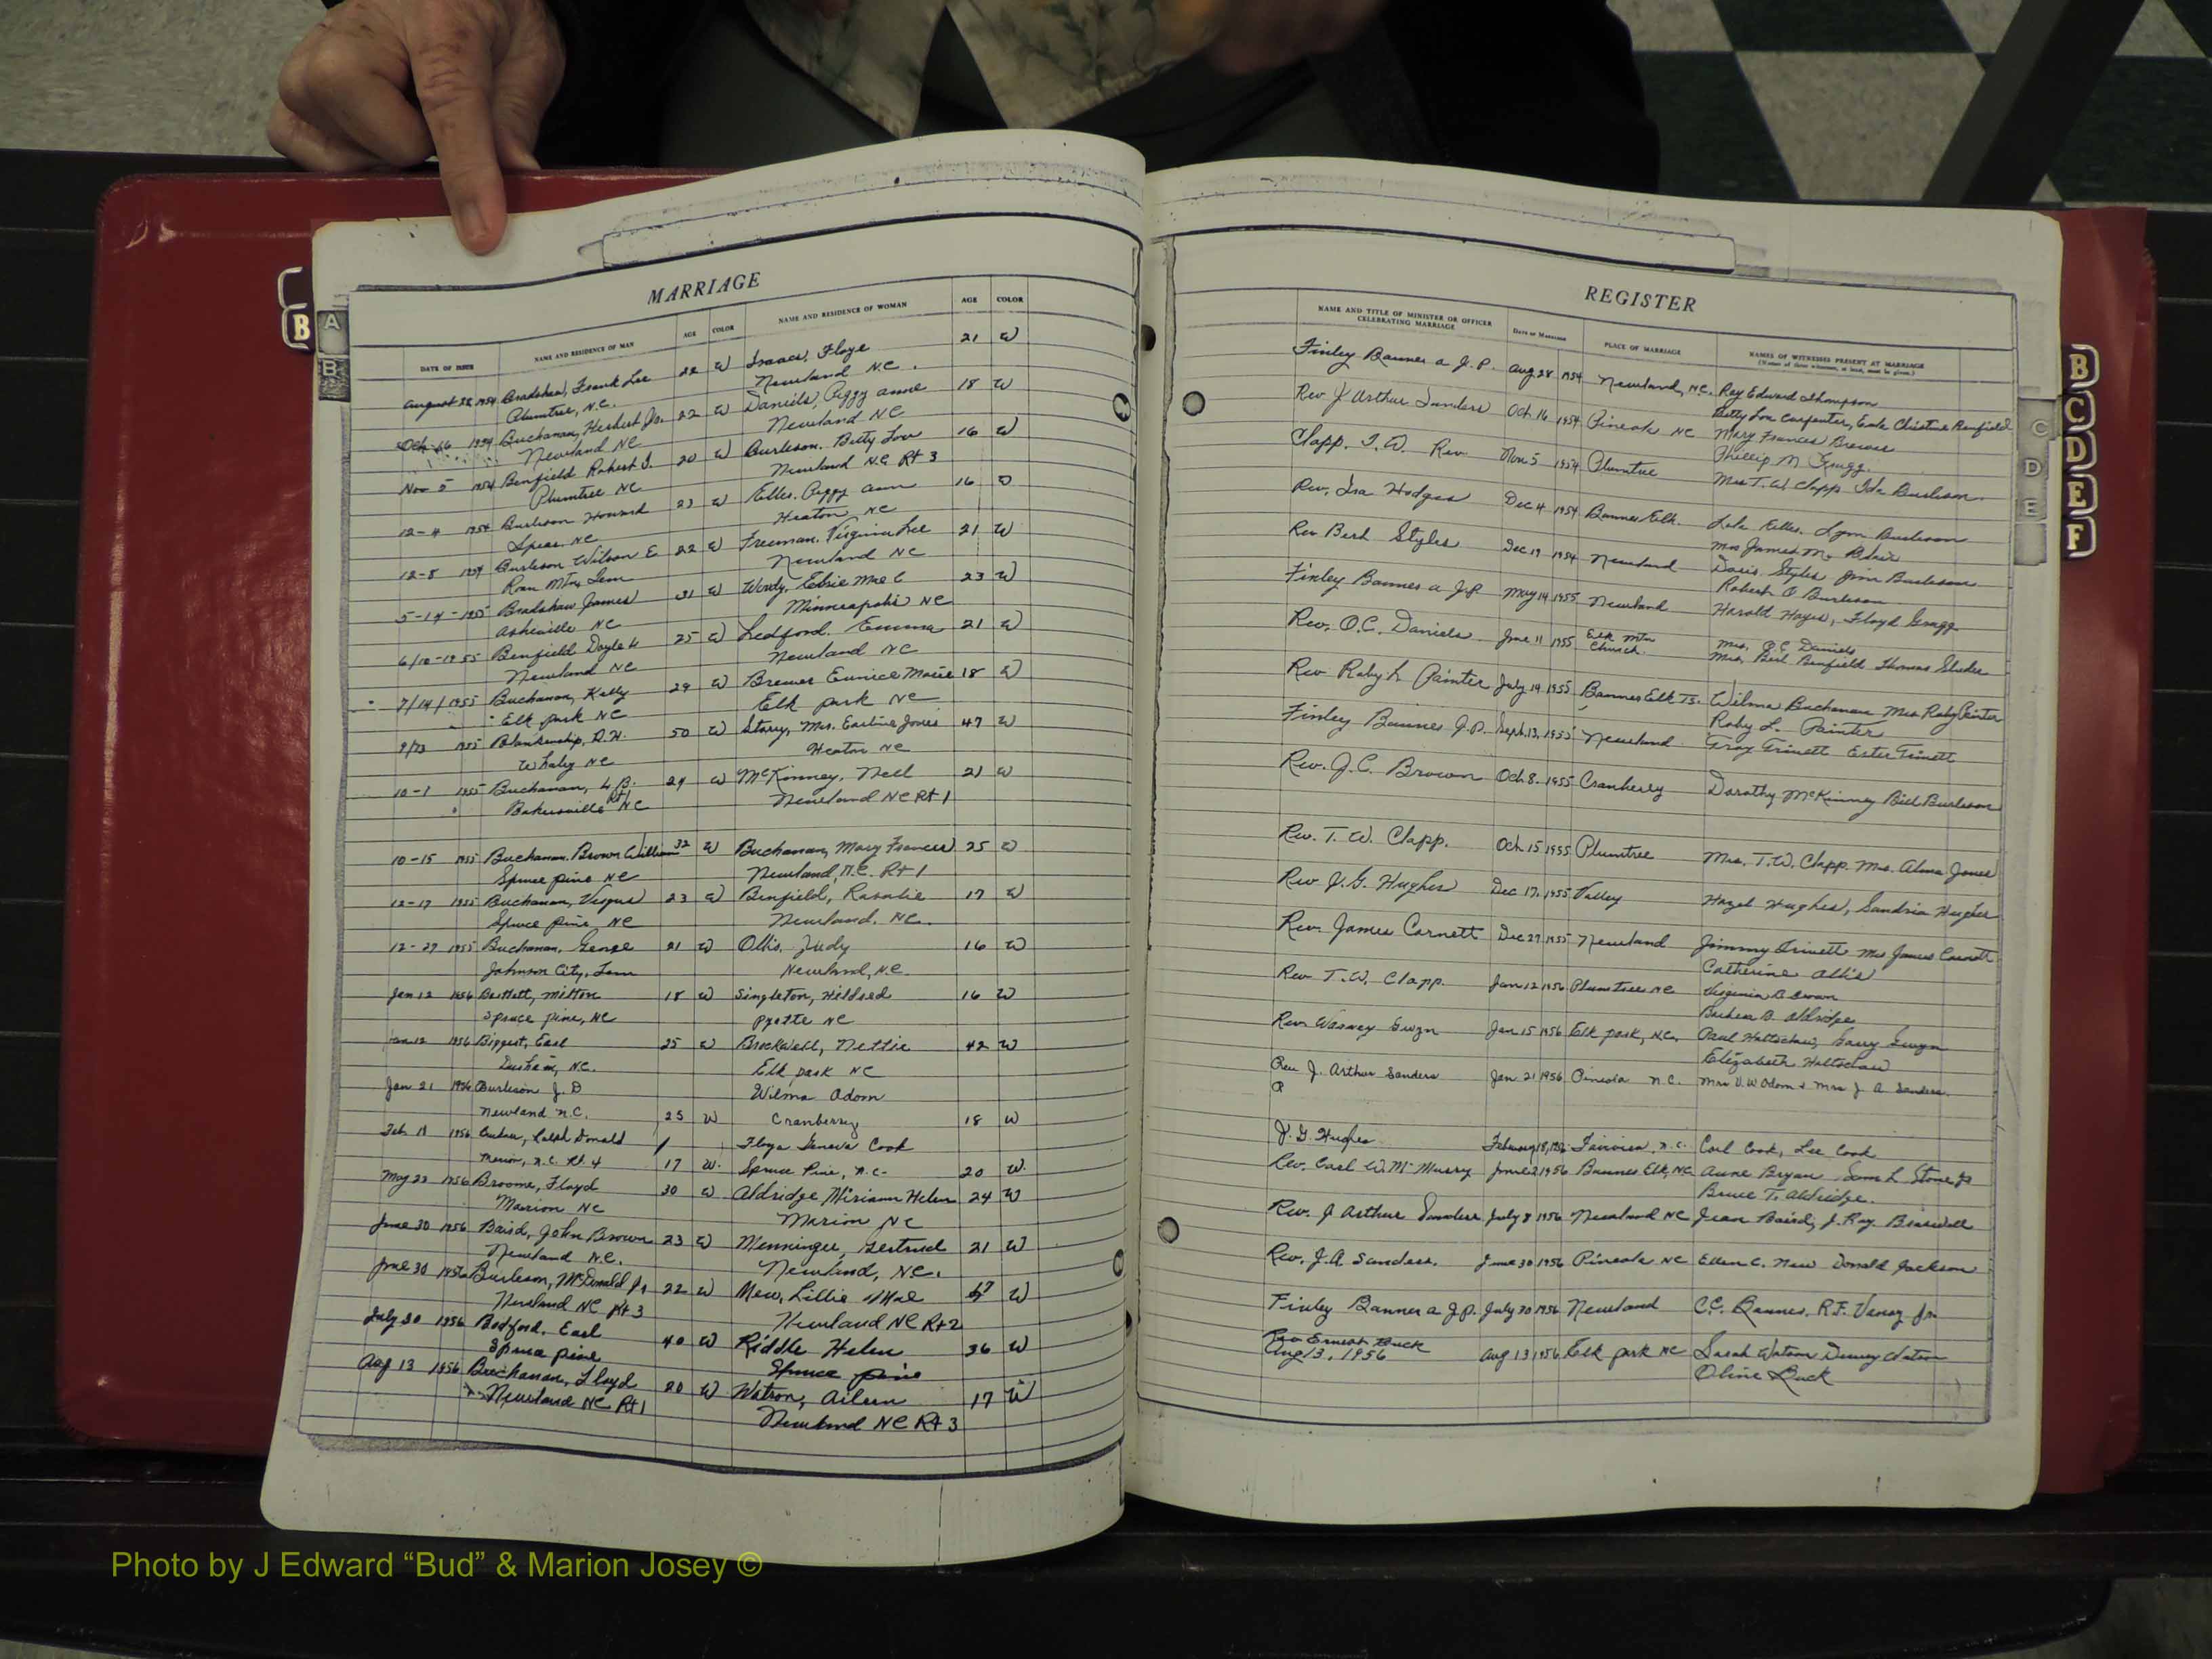 MARRIAGE
DATE OF ISSUE NAME AND RESIDENCE OF MAN AGE COLOR NAME AND RESIDENCE OF WOMAN AGE COLOR
August 28 1954 Bradshaw, Frank Lee 22 W Isaacs, Floye 21 W
Plumtree, N.C. Newland N.C.
Oct 16 1954 Buchanan, Herbert Jr. 22 W Daniels, Peggy Anne 18 W
Newland NC Newland NC
Nov 5 1954 Benfield Robert J. 20 W Burleson, Betty Lou 16 W
Plumtree NC Newland NC Rt 3
12-4 1954 Burleson Howard 23 W Eller, Peggy Ann 16
Spear NC Heaton NC
12-8 1954 Burleson Wilson E 22 W Freeman, Virginia Lee 21 W
Roan Mtn Tenn Newland NC
5-14-1955 Bradshaw James 31 W Woody, Elsie Mae C 23 W
Asheville NC Minneapolis NC
6/10-1955 Benfield Doyle 25 W Ledford, Emma 21 W
Newland NC Newland NC
7/14/1955 Buchanan, Kelly 29 W Brewer Eunice Marie 18 W
Elk park NC Elk park NC
9/13 1955 Blankenship, D.H. 50 W Story, Mrs. Earline Jones 47 W
Whaley NC Heaton NC
10-1 1955 Buchanan, L B. 29 W McKinney, Nell 21 W
Bakersville Rt 1 NC Newland NC Rt 1
10-15 1955 Buchanan, Brown William 32 W Buchanan, Mary Frances 25 W
Spruce pine NC Newland, N.C. Rt 1
12-17 1955 Buchanan, Vergus 23 W Benfield, Rosalie 17 W
Spruce pine NC Newland, NC.
12-27 1955 Buchanan, George 21 W Ollis, Judy 16 W
Johnson City, Tenn Newland, N.C.
Jan 12 1956 Bartlett, Milton 18 W Singleton, Mildred 16 W
Spruce pine, NC Pyatte NC
Jan 12 1956 Biggest, Earl 25 W Brockwell, Nettie 42 W
Durham, NC. Elk park NC
Jan 21 1956 Burleson J. D Wilma Odom
Newland N.C. 25 W Cranberry 18 W
Feb. 18 1956 Ralph Donald Floye Geneva Cook
Marion, N.C. Rt. 4 17 W. Spruce Pine, N.C. 20 W.
May 29 1956 Broome, Floyd 30 W Aldridge, Miriam Helen 24 W
Marion NC Marion NC
June 30 1956 Baird, John Brown 23 W Menninger, Gertrud 21 W
Newland N.C. Newland, NC.
June 30 1956 Burleson, McDonald Jr 22 W New, Lillie Mae W
Newland NC Rt 3 Newland NC Rt 2
July 30 1956 Bedford, Earl 40 W Riddle Helen 36 W
Spruce pine Spruce pine
Aug 13 1956 Buchanan, Lloyd 20 W Watson, Aileen 17 W
Newland NC Rt 1 Newland NC Rt 3
REGISTER
NAME AND TITLE OF MINISTER OR OFFICER CELEBRATING MARRIAGE Date of Marriage PLACE OF MARRIAGE NAMES OF WITNESSES PRESENT AT MARRIAGE
(Names of three witnesses, at least, must be given.)
Finley Banner a J.P. Aug 28 1954 Newland, N.C. Roy Edward Thompson
Betty Lou Carpenter, Christine Benfield
Rev J Arthur Sanders Oct 16 1954 Pineola NC Mary Frances Brewer
Phillip M Gragg.
Clapp, T.W. Rev. Nov 5 1954 Plumtree Mrs T.W. Clapp Ida Burleson
Rev. Ira Hodges Dec 4 1954 Banner Elk. Lula Eller, Lynn Burleson
Mrs James M. Blair
Rev Bert Styles Dec 19 1954 Newland Doris Styles Jim Burleson
Robert O Burleson
Finley Banner a J.P. May 14 1955 Newland Harold Hayes, Floyd Gragg
Rev. O.C. Daniels June 11 1955 Elk Mtn Church. Mrs. O.C. Daniels
Mrs. Bert Benfield Thomas
Rev Roby L Painter July 14 1955 Banner Elk TS. Wilma Buchanan Mrs Roby Painter
Roby L. Painter
Finley Banner J.P. Sept. 13, 1955 Newland Troy Trivett Ester Trivett
Rev. J.C. Brown Oct 8. 1955 Cranberry Dorothy McKinney Bill Burleson
Rev. T. W. Clapp. Oct 15 1955 Plumtree Mrs. T.W. Clapp. Mrs. Alma Jones
Rev J.G. Hughes Dec 17, 1955 Valley Hazel Hughes, Sandria Hughes
Rev. James Cornett Dec 27 1955 Newland Jimmy Trivett Mrs James Cornett
Catherine Ollis
Rev T.W. Clapp. Jan 12 1956 Plumtree NC Virginia B Brown
B. Aldridge
Rev. Gwyn Jan 15 1956 Elk park, NC. Paul Holtsclaw, Gwyn
Elizabeth Holtsclaw
Rev. J. Arthur Sanders Jan. 21 1956 Pineola N.C. Mrs V.W Odom & Mrs J. A Sanders.
J. G. Hughes February 18, 1956 Fairview, N.C. Carl Cook, Lee Cook
Rev. Carl W. McMurry June 2 1956 Banner Elk, NC Anne Bryan Sam L Stone Jr
Bruce T. Aldridge.
Rev. J Arthur Sanders July 8 1956 Newland NC Jean Baird, J. Ray Braswell
Rev. J.A Sanders. June 30 1956 Pineola NC Ellen C. New Donald Jackson
Finley Banner a J.P. July 30 1956 Newland C.C. Banner. R.F. Vance Jr.
Rev Ernest Buck
Aug 13, 1956 Aug 13 1956 Elk park NC Sarah Watson Dewey Watson
Oline Buck
A
B
B
C
D
E
B
C
D
E
F
Photo by J Edward “Bud” & Marion Josey ©